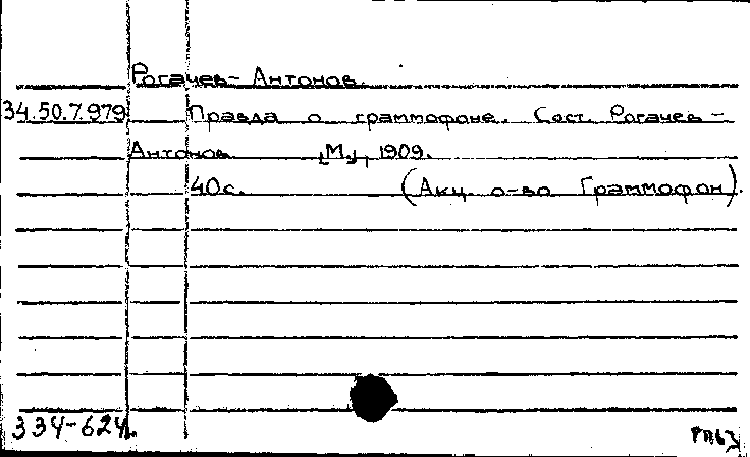 Рогачев-Антонов.
34.50.7.979 Правда о граммофоне. Сост. Рогачев-
Антонов [М.], 1909.
40с. (Акц. о-во Граммофон).
334-624.